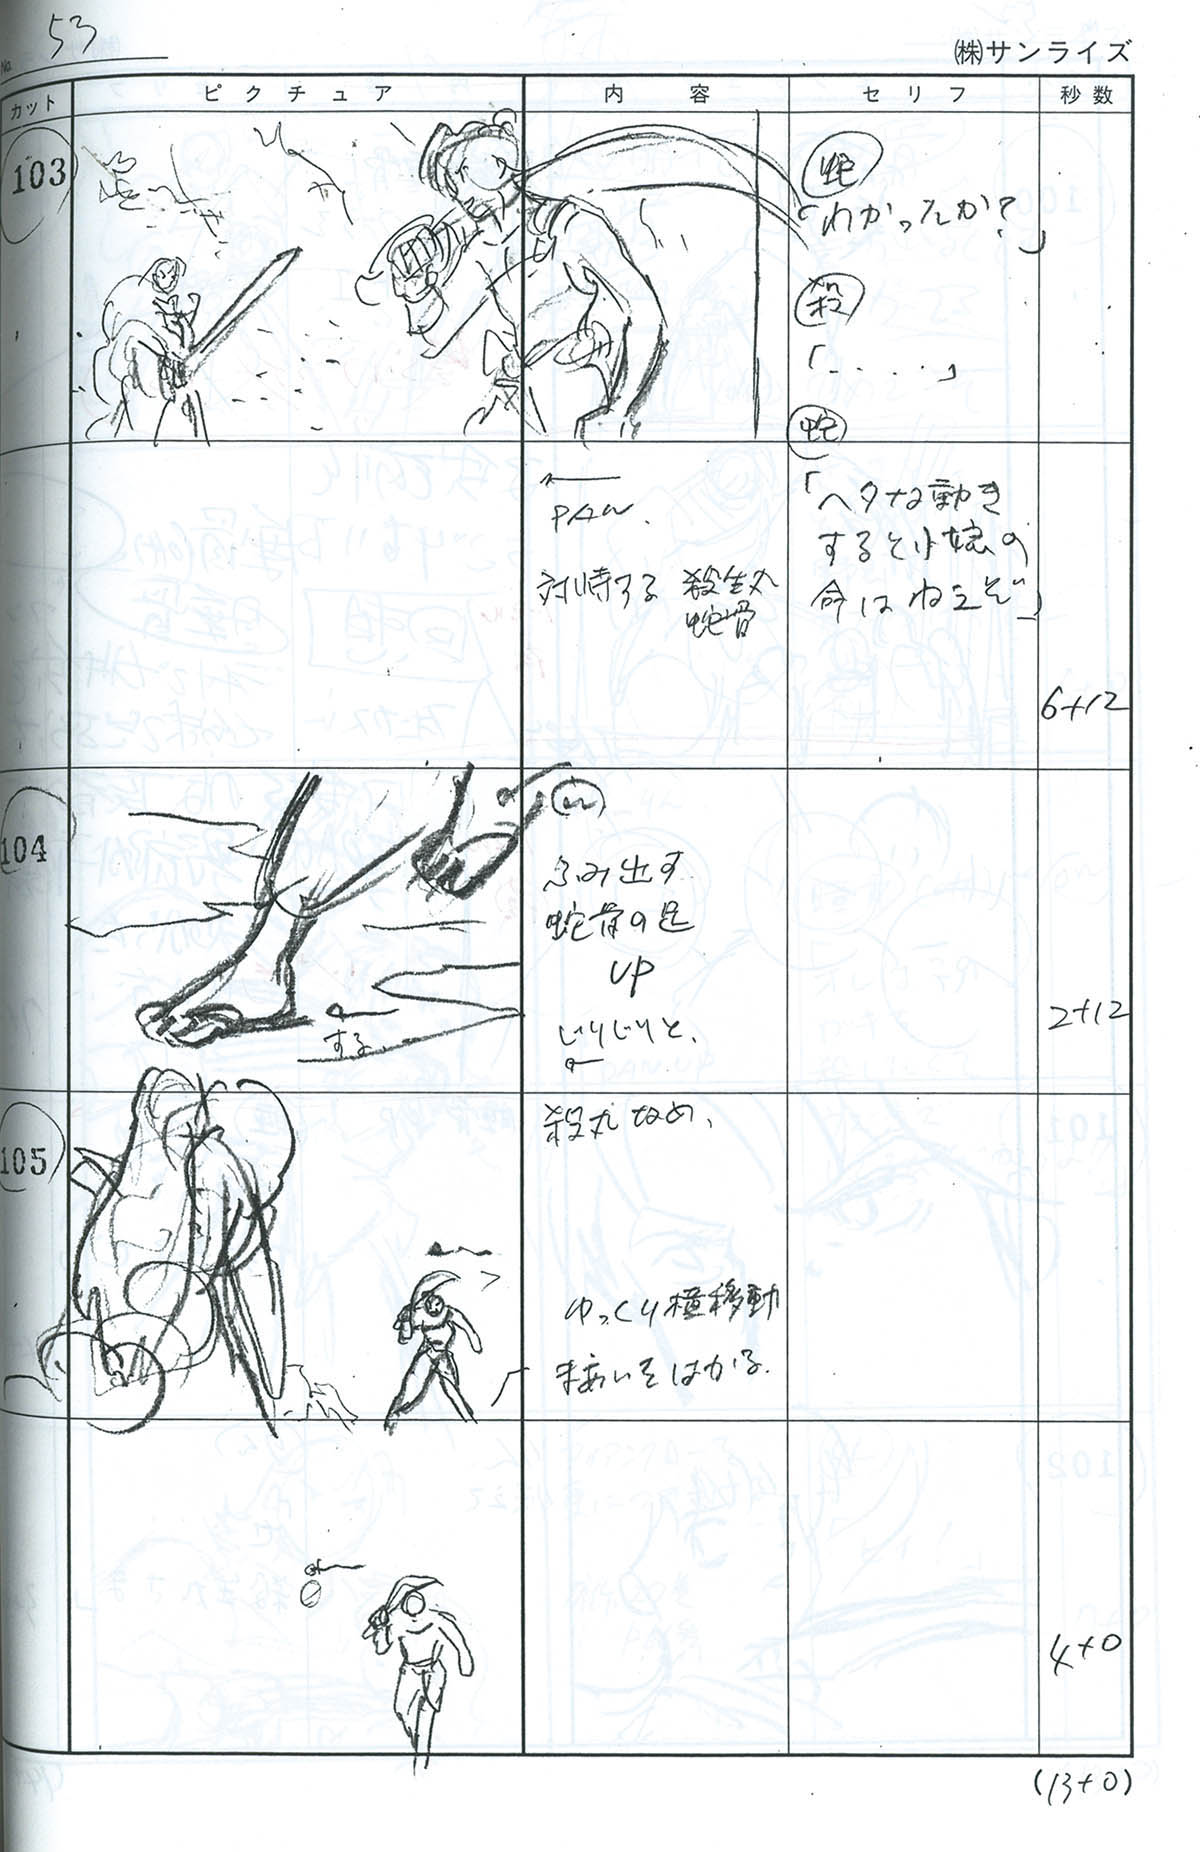 No. 53
㈱サンライズ
カット
ピクチュア
内容
セリフ
秒数
103
蛇
「わかったか?」
殺
「.....」
蛇
PAN.
対峙する 殺生丸
蛇骨
「ヘタな動き
すると小娘の
命はねえぞ」
6+12
104
ふみ出す
蛇骨の足
UP
じりじりと、
する
2+12
105
殺丸なめ、
ゆっくり横移動
まあいをはかる.
4+0
(13+0)